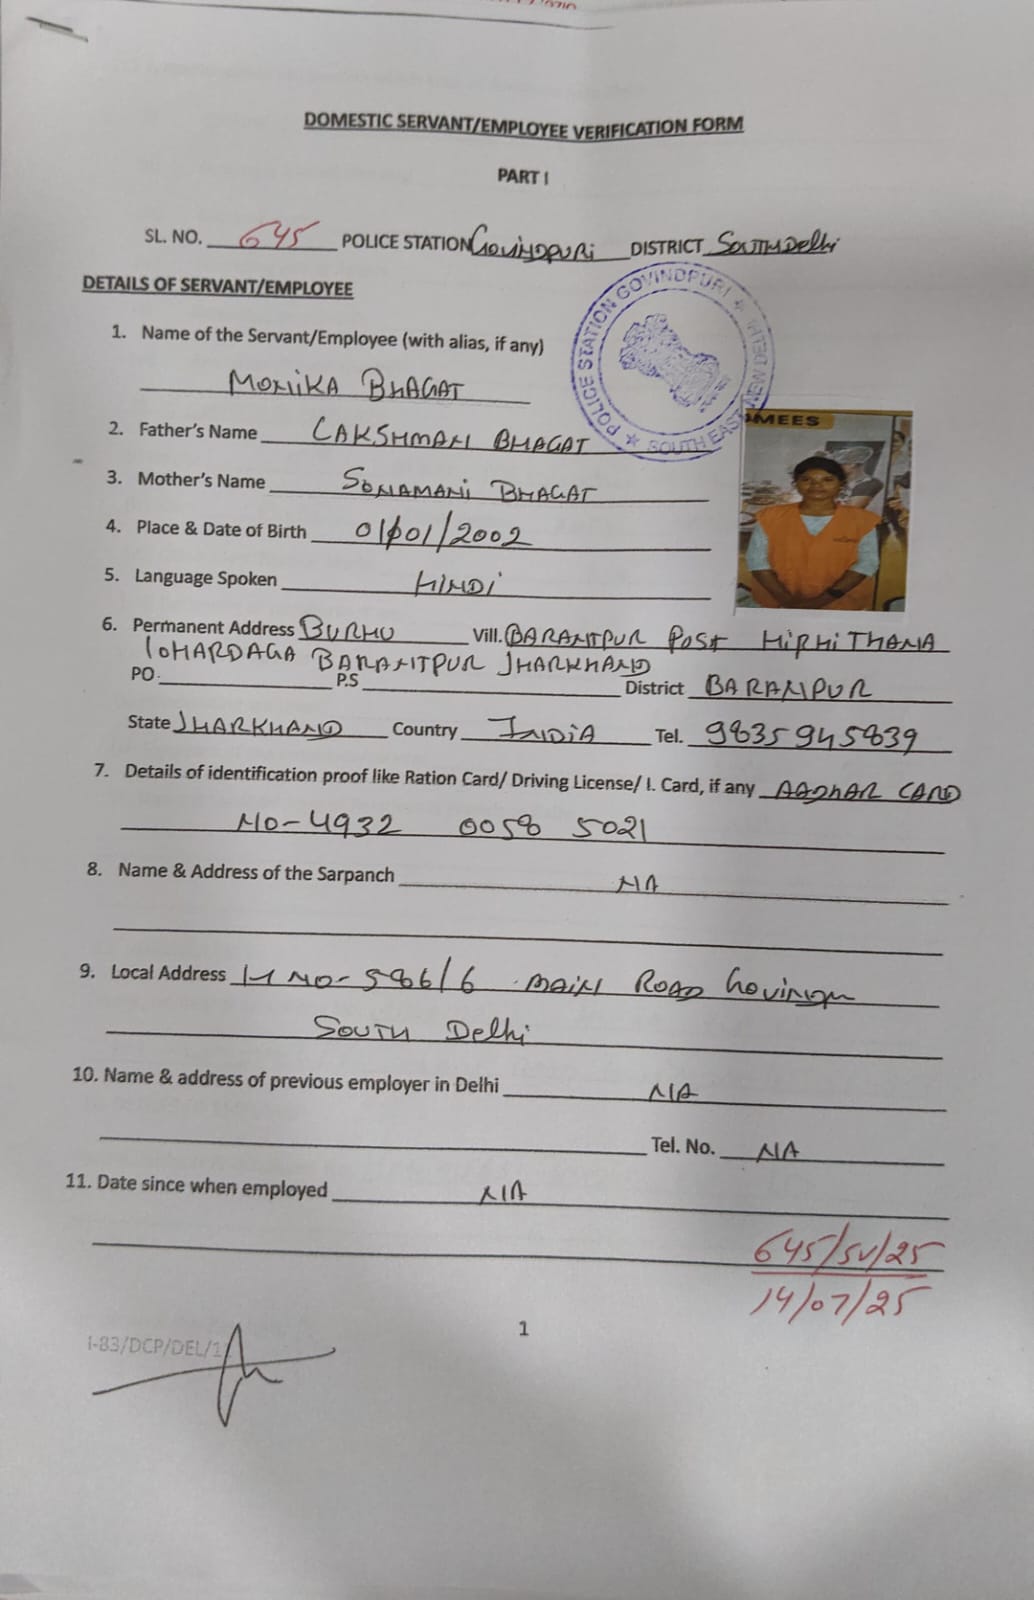 DOMESTIC SERVANT/EMPLOYEE VERIFICATION FORM
PART I
SL. NO. 645 POLICE STATION GOVINDPURI DISTRICT SOUTH Delhi
DETAILS OF SERVANT/EMPLOYEE
POLICE STATION GOVINDPURI ★ SOUTH EAST NEW DELHI ★
1. Name of the Servant/Employee (with alias, if any)
MONIKA BHAGAT
2. Father's Name LAKSHMAN BHAGAT
OMEES
3. Mother's Name SONAMANI BHAGAT
4. Place & Date of Birth 01/01/2002
5. Language Spoken HINDI
6. Permanent Address BURHU Vill. BARANTPUR POST HIRHI THANA
LOHARDAGA BARANTPUR JHARKHAND
PO. P.S District BARANPUR
State JHARKHAND Country INDIA Tel. 9835945839
7. Details of identification proof like Ration Card/ Driving License/ I. Card, if any AADHAR CARD
NO-4932 0058 5021
8. Name & Address of the Sarpanch NA
9. Local Address H NO-586/6 MAIN ROAD
SOUTH Delhi
10. Name & address of previous employer in Delhi NA
Tel. No. NA
11. Date since when employed NA
645/SV/25
14/07/25
1
I-83/DCP/DEL/1